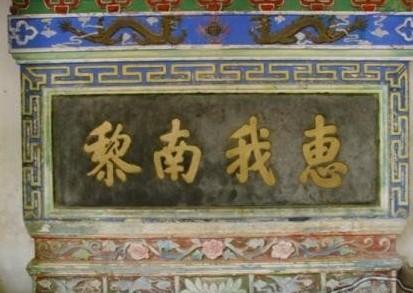 惠我南黎